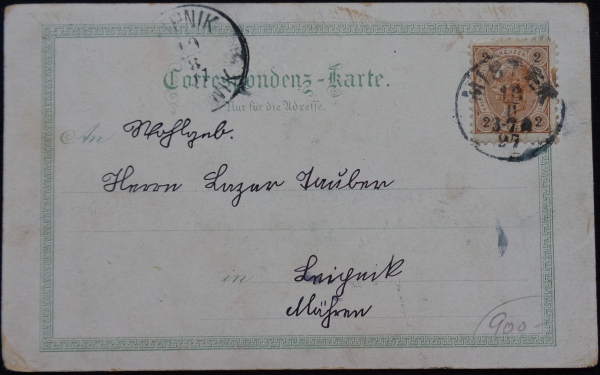 Correspondenz-Karte.
Nur für die Adresse.
An Wohlgeb.
Herrn Lazar Tauber
in Leipnik
Mähren
2 2
2 2
97
900-